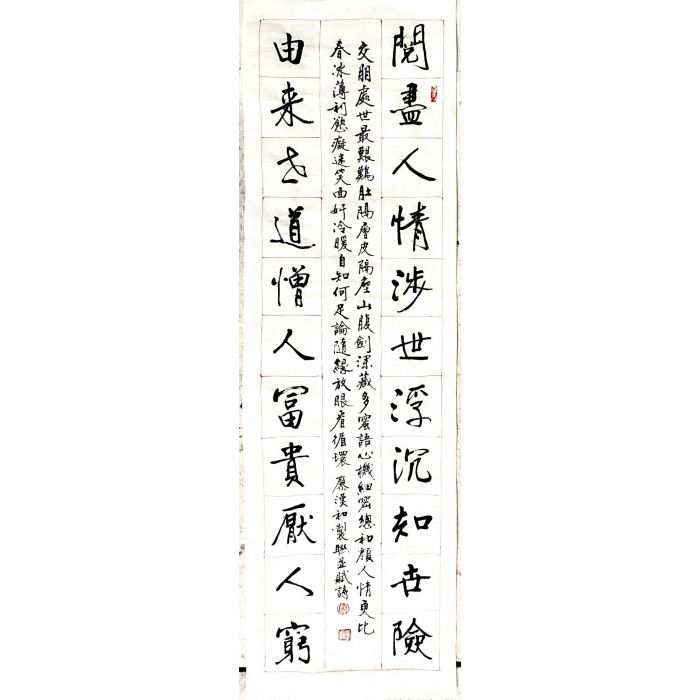 閱盡人情涉世浮沉知世險
交朋處世最艱難肚隔層皮隔座山腹劍深藏多蜜語心機細密總和顏人情更比
春冰薄利慾癡迷笑面奸冷暖自知何足論隨緣放眼看循環 漢和製聯並賦詩
由来世道憎人富貴厭人窮